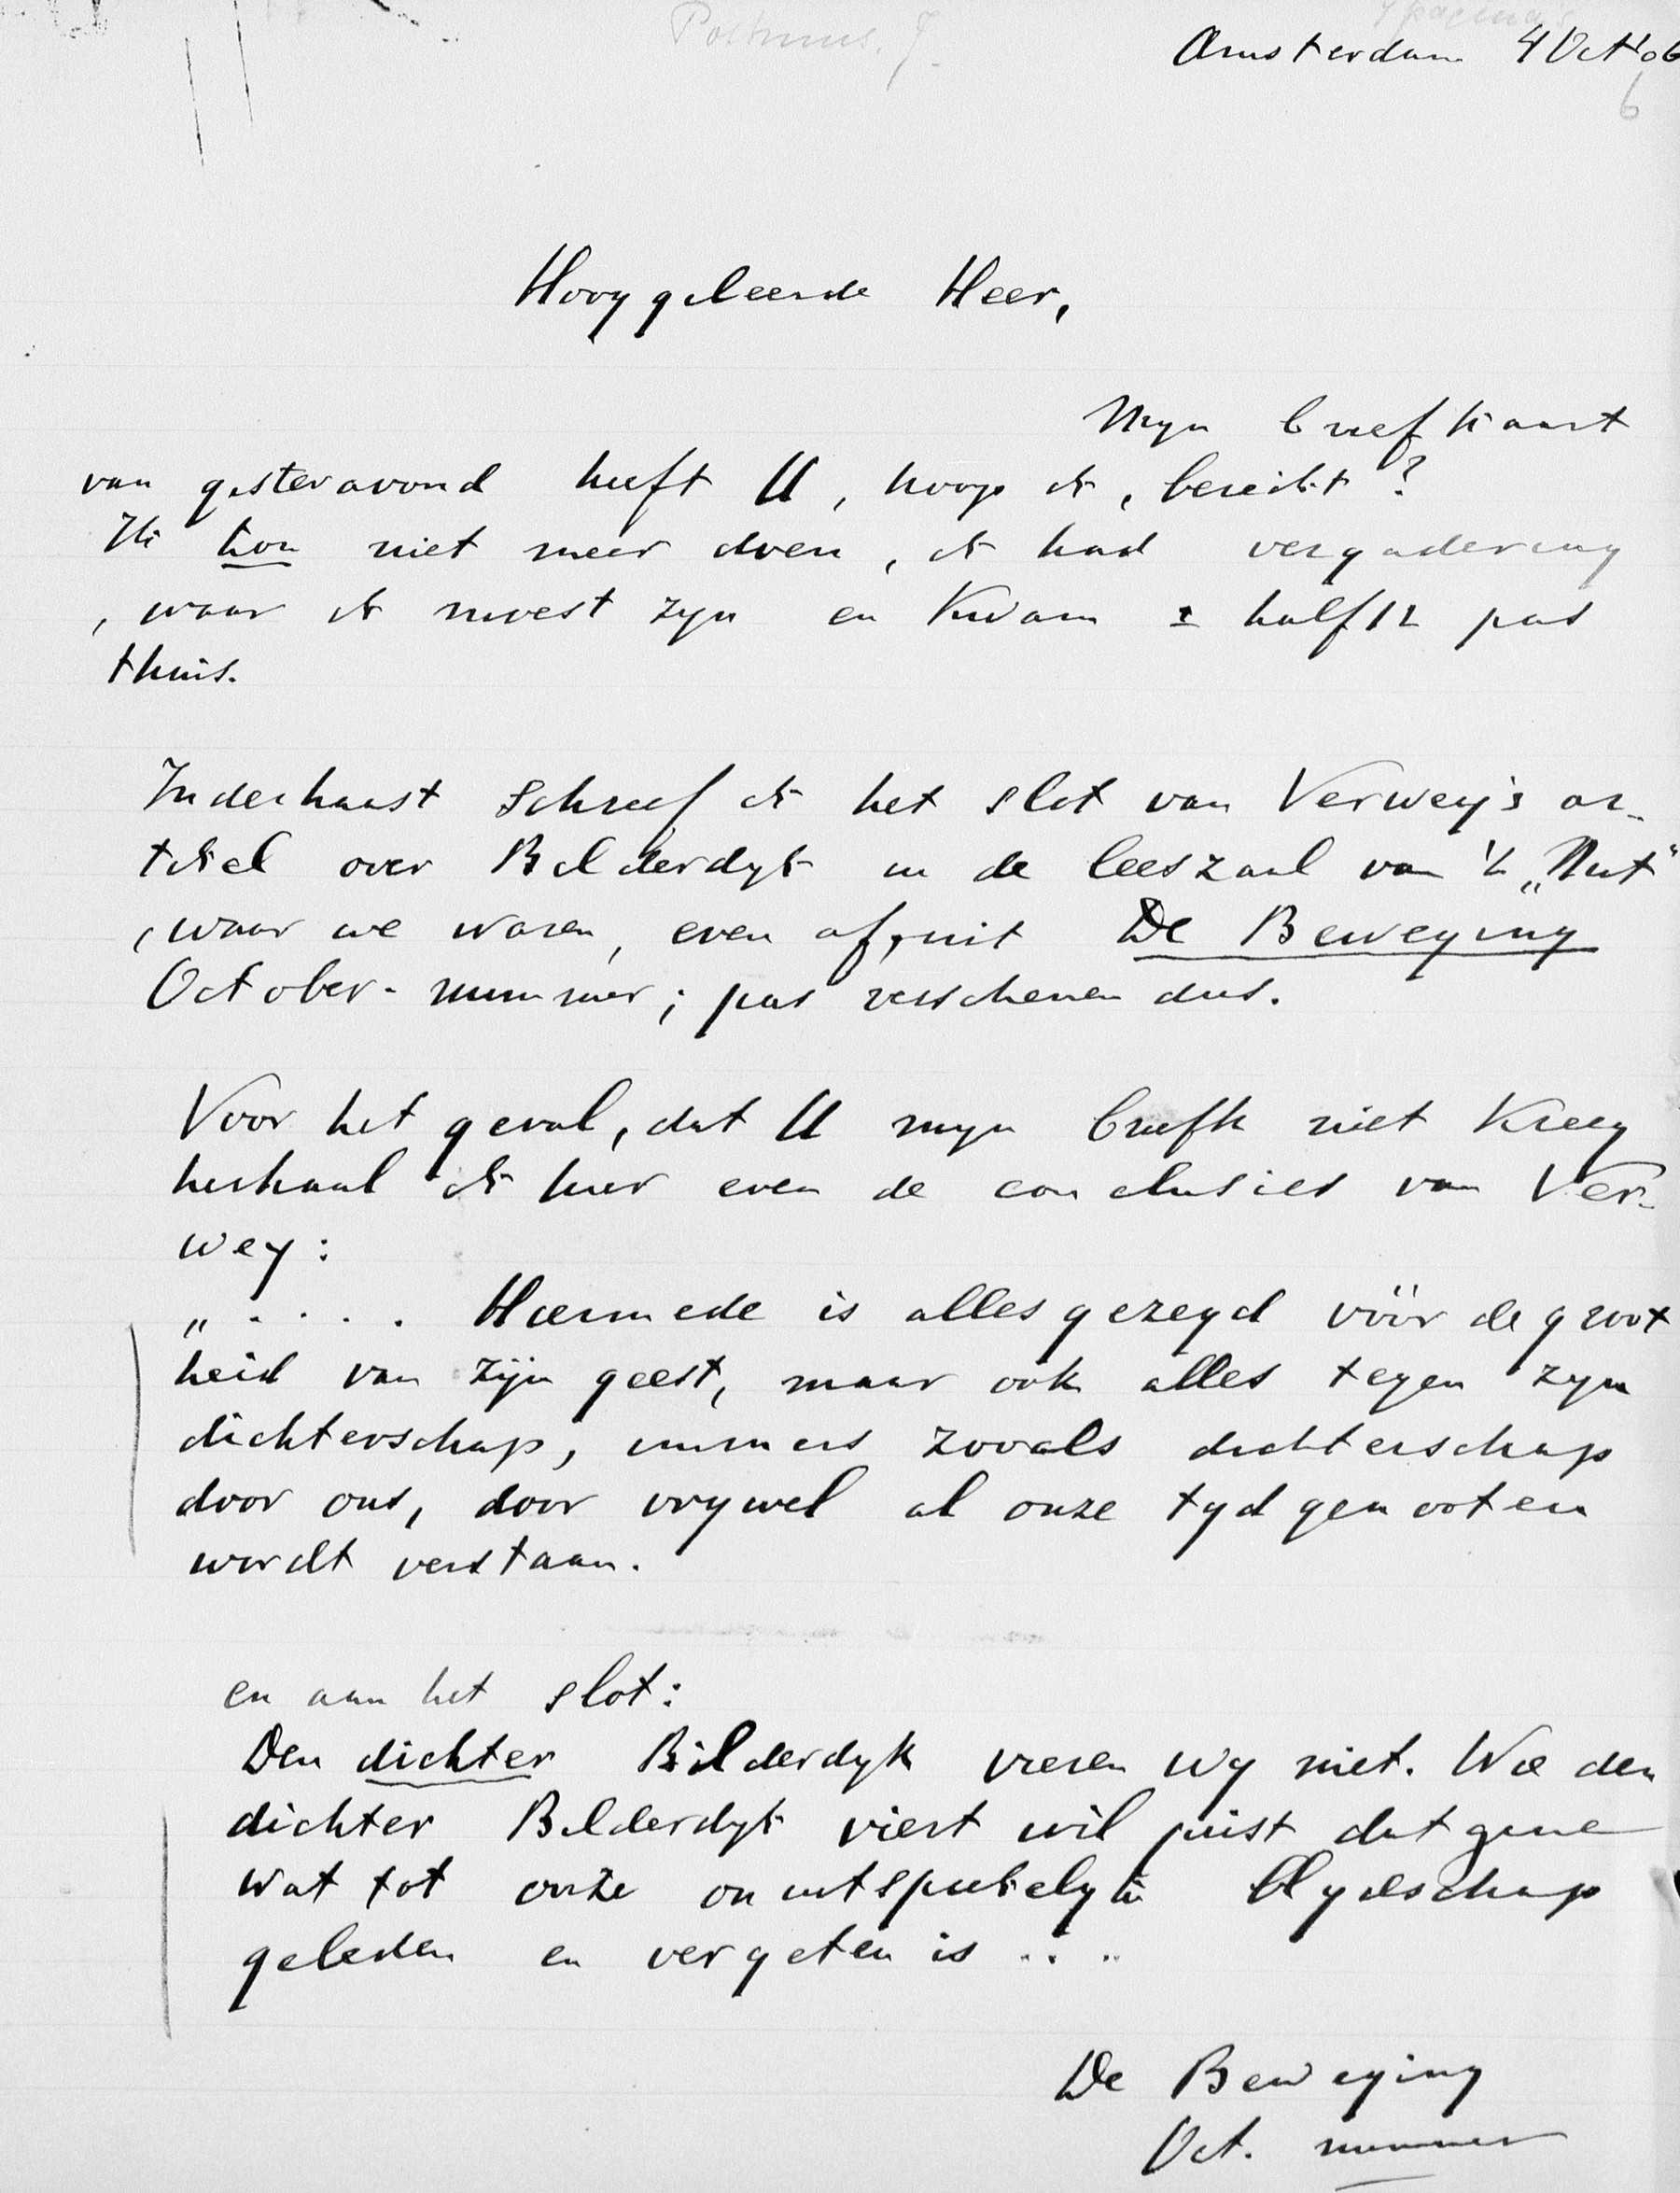 Postmus. J.
4 pagina's
Amsterdam 4 Oct '06
6
Hooggeleerde Heer,
Mijn briefkaart
van gisteravond heeft U, hoop ik, bereikt?
Ik kon niet meer doen, ik had vergadering
, waar ik moest zijn en kwam ± half 12 pas
thuis.
Inderhaast schreef ik het slot van Verwey's ar-
tikel over Bilderdijk in de leeszaal van 't „Nut"
, waar we waren, even af, uit De Beweging
October-nummer; pas verschenen dus.
Voor het geval, dat U mijn briefk niet kreeg
herhaal ik hier even de conclusies van Ver-
wey:
„ . . . . Hiermede is alles gezegd vóór de groot
heid van zijn geest, maar ook alles tegen zijn
dichterschap, immers zooals dichterschap
door ons, door vrywel al onze tydgenooten
wordt verstaan.
en aan het slot:
Den dichter Bilderdyk vieren wy niet. Wie den
dichter Bilderdijk viert wil juist datgene
wat tot onze onuitsprekelyke blydschap
geleden en vergeten is . . . .
De Beweging
Oct. nummer